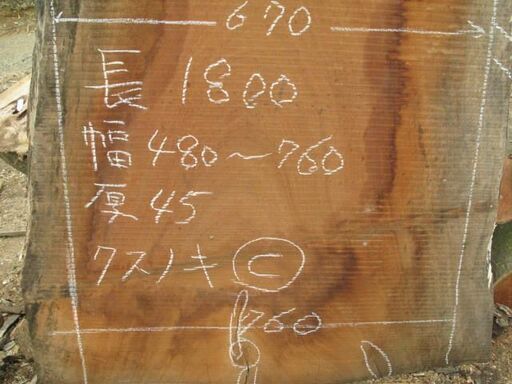 670
長 1800
幅 480～760
厚 45
クスノキ C
760